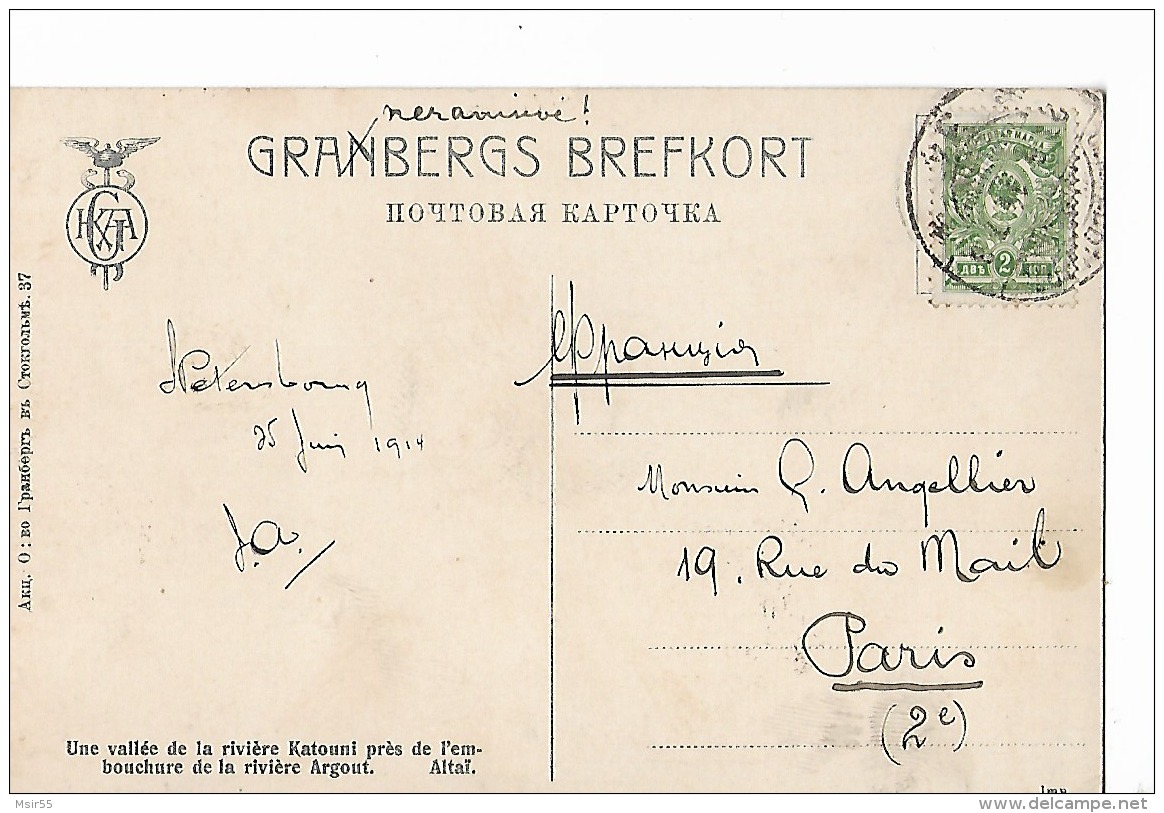 GRANBERGS BREFKORT
ПОЧТОВАЯ КАРТОЧКА
HKGA
ДВѢ 2 КОП
Акц. О:во Гранбергъ въ Стокгольмѣ. 37
Франція
Petersbourg
25 Juin 1914
J.A.
Monsieur G. Angellier
19. Rue du Mail
Paris
(2e)
Une vallée de la rivière Katouni près de l'em-
bouchure de la rivière Argout. Altaï.
Imp.
Msir55
delcampe.net